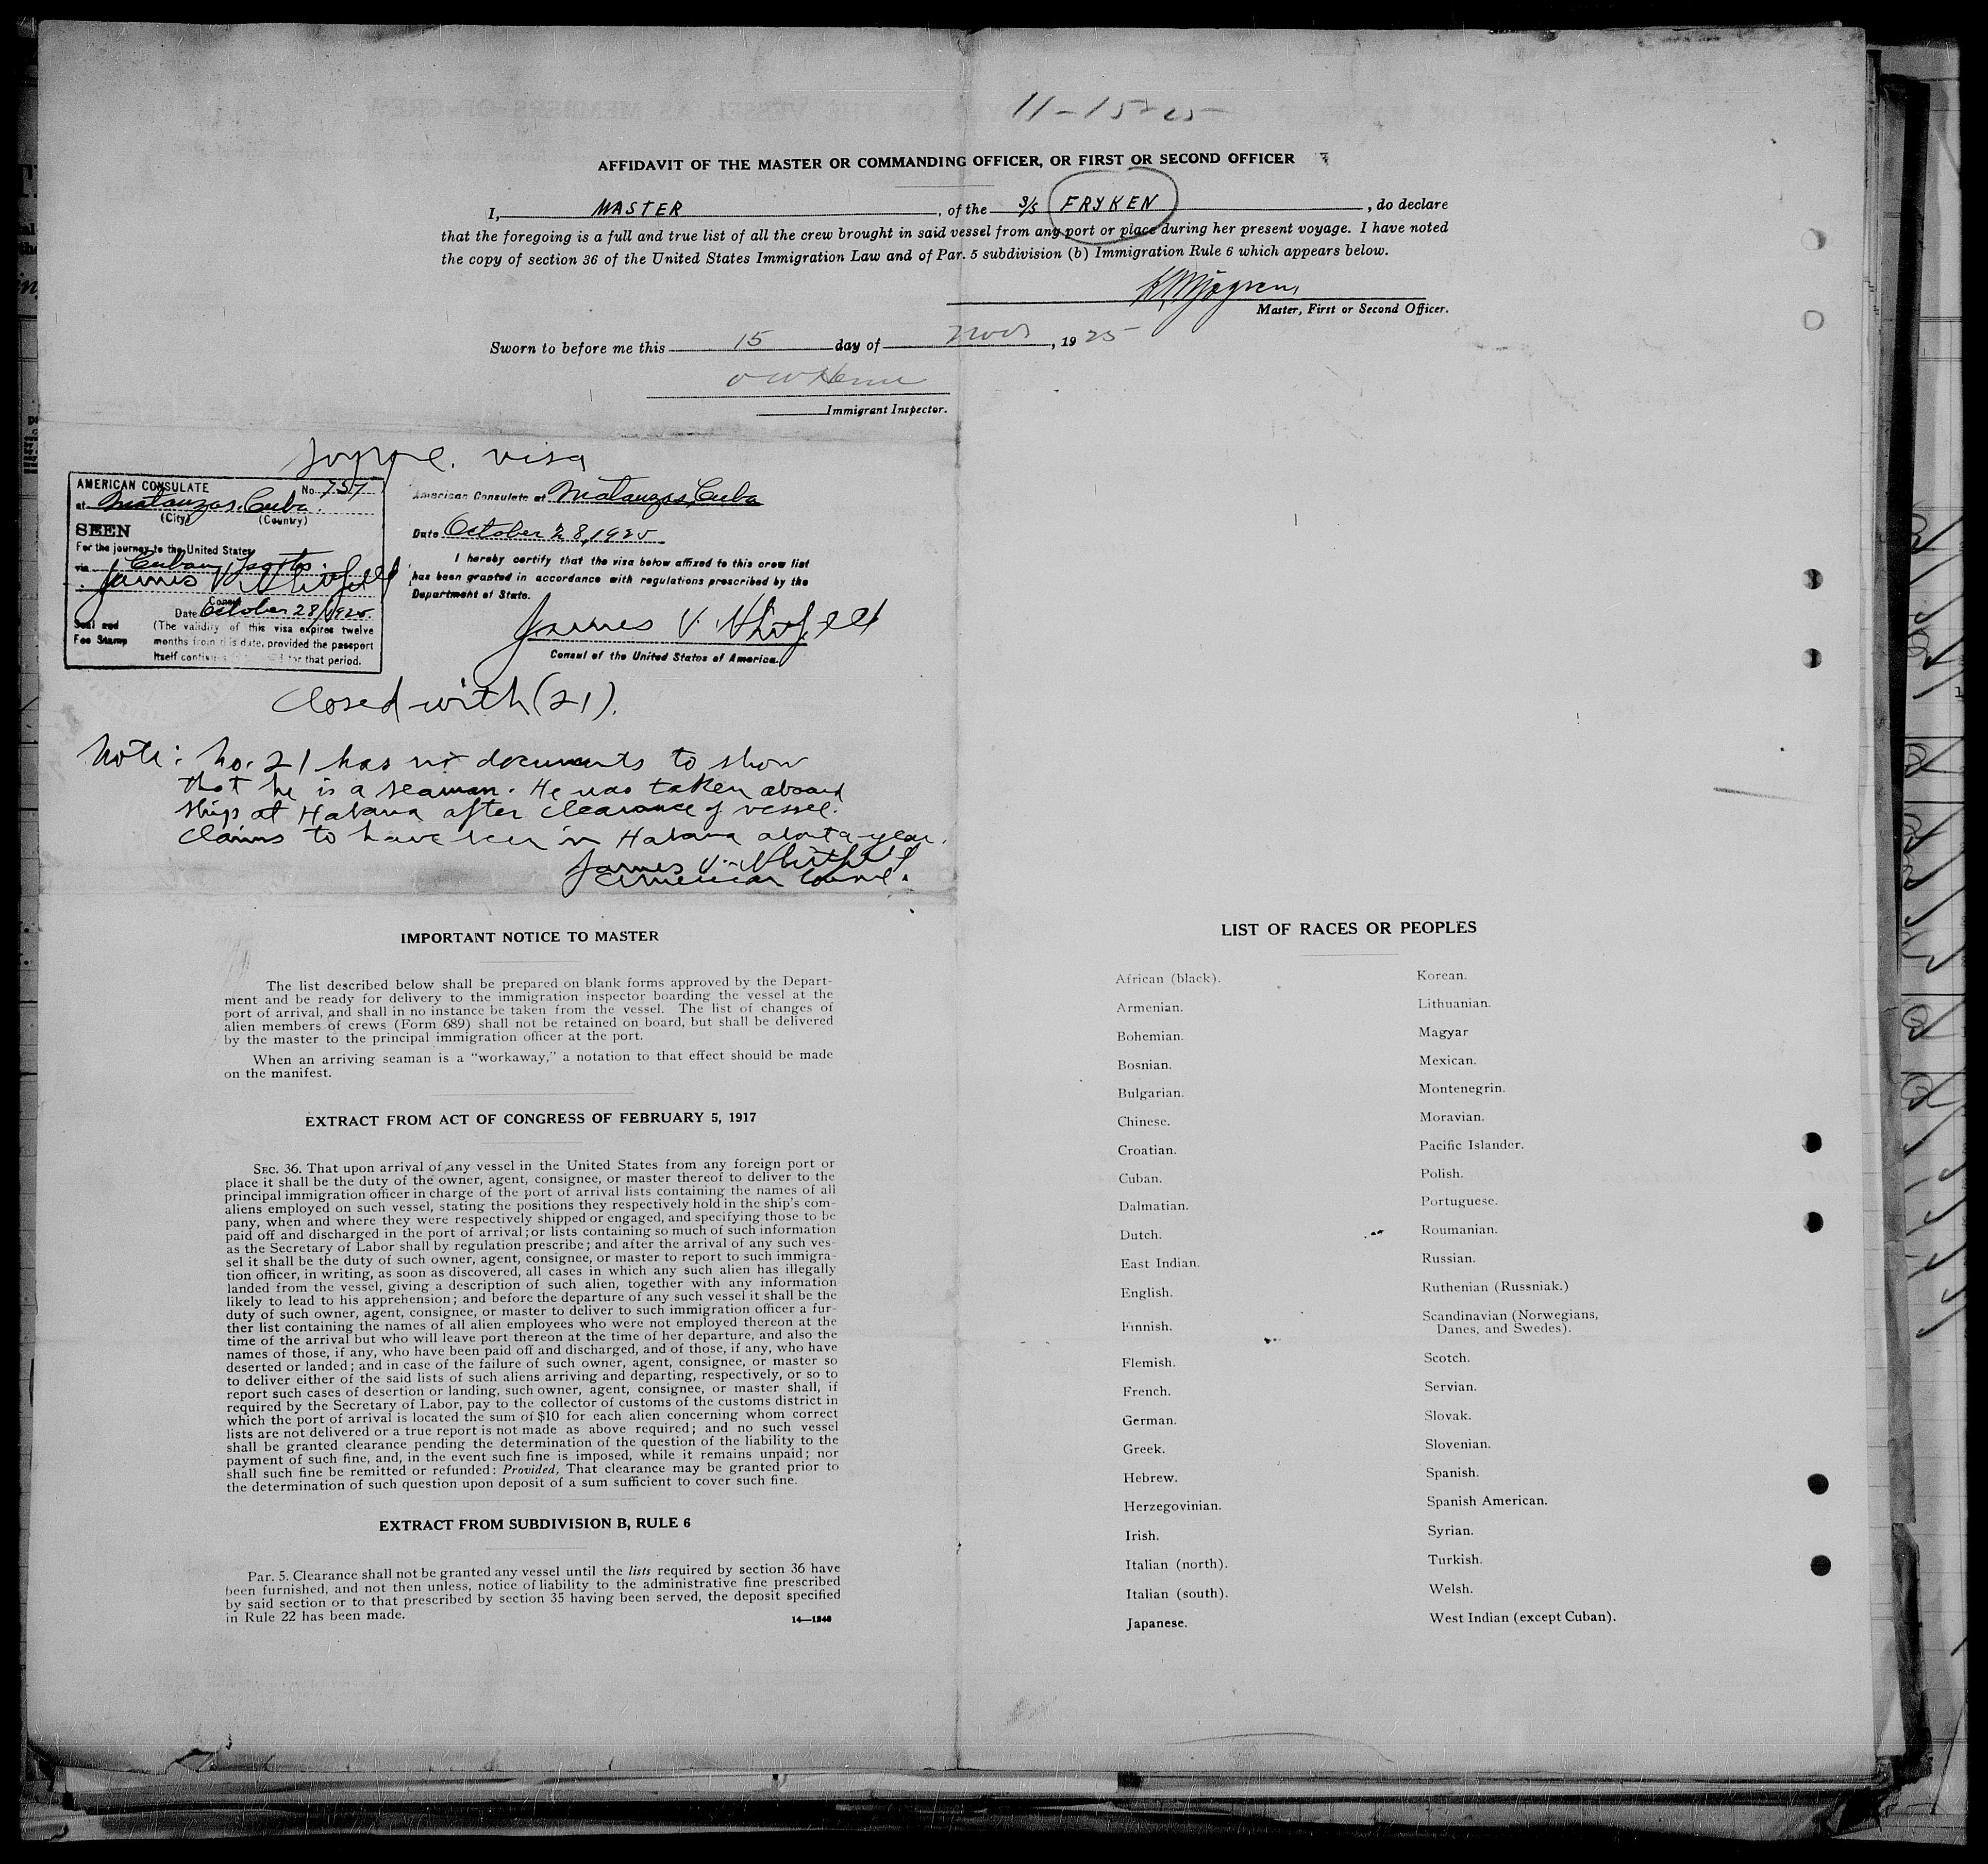 11-15-25
AFFIDAVIT OF THE MASTER OR COMMANDING OFFICER, OR FIRST OR SECOND OFFICER
I, MASTER, of the S/S FRYKEN, do declare
that the foregoing is a full and true list of all the crew brought in said vessel from any port or place during her present voyage. I have noted
the copy of section 36 of the United States Immigration Law and of Par. 5 subdivision (b) Immigration Rule 6 which appears below.
Master, First or Second Officer.
Sworn to before me this 15 day of Nov, 1925
Immigrant Inspector.
visa
AMERICAN CONSULATE No. 757
at Matanzas, Cuba.
(City) (Country)
SEEN
For the journey to the United States
via Cuban ports.
James V. Whitfield
Consul
Date October 28/1925.
Seal and
Fee Stamp
(The validity of this visa expires twelve
months from this date, provided the passport
itself continues for that period.
American Consulate at Matanzas, Cuba
Date October 28, 1925
I hereby certify that the visa below affixed to this crew list
has been granted in accordance with regulations prescribed by the
Department of State.
James V. Whitfield
Consul of the United States of America.
Closed with (21).
Note: No. 21 has no documents to show
that he is a seaman. He was taken aboard
ship at Habana after clearance of vessel.
Claims to have been in Habana about a year.
James V. Whitfield
American Consul.
IMPORTANT NOTICE TO MASTER
The list described below shall be prepared on blank forms approved by the Depart-
ment and be ready for delivery to the immigration inspector boarding the vessel at the
port of arrival, and shall in no instance be taken from the vessel. The list of changes of
alien members of crews (Form 689) shall not be retained on board, but shall be delivered
by the master to the principal immigration officer at the port.
When an arriving seaman is a "workaway," a notation to that effect should be made
on the manifest.
EXTRACT FROM ACT OF CONGRESS OF FEBRUARY 5, 1917
SEC. 36. That upon arrival of any vessel in the United States from any foreign port or
place it shall be the duty of the owner, agent, consignee, or master thereof to deliver to the
principal immigration officer in charge of the port of arrival lists containing the names of all
aliens employed on such vessel, stating the positions they respectively hold in the ship's com-
pany, when and where they were respectively shipped or engaged, and specifying those to be
paid off and discharged in the port of arrival; or lists containing so much of such information
as the Secretary of Labor shall by regulation prescribe; and after the arrival of any such ves-
sel it shall be the duty of such owner, agent, consignee, or master to report to such immigra-
tion officer, in writing, as soon as discovered, all cases in which any such alien has illegally
landed from the vessel, giving a description of such alien, together with any information
likely to lead to his apprehension; and before the departure of any such vessel it shall be the
duty of such owner, agent, consignee, or master to deliver to such immigration officer a fur-
ther list containing the names of all alien employees who were not employed thereon at the
time of the arrival but who will leave port thereon at the time of her departure, and also the
names of those, if any, who have been paid off and discharged, and of those, if any, who have
deserted or landed; and in case of the failure of such owner, agent, consignee, or master so
to deliver either of the said lists of such aliens arriving and departing, respectively, or so to
report such cases of desertion or landing, such owner, agent, consignee, or master shall, if
required by the Secretary of Labor, pay to the collector of customs of the customs district in
which the port of arrival is located the sum of $10 for each alien concerning whom correct
lists are not delivered or a true report is not made as above required; and no such vessel
shall be granted clearance pending the determination of the question of the liability to the
payment of such fine, and, in the event such fine is imposed, while it remains unpaid; nor
shall such fine be remitted or refunded: Provided, That clearance may be granted prior to
the determination of such question upon deposit of a sum sufficient to cover such fine.
EXTRACT FROM SUBDIVISION B, RULE 6
Par. 5. Clearance shall not be granted any vessel until the lists required by section 36 have
been furnished, and not then unless, notice of liability to the administrative fine prescribed
by said section or to that prescribed by section 35 having been served, the deposit specified
in Rule 22 has been made.
14—1240
LIST OF RACES OR PEOPLES
African (black).
Armenian.
Bohemian.
Bosnian.
Bulgarian.
Chinese.
Croatian.
Cuban.
Dalmatian.
Dutch.
East Indian.
English.
Finnish.
Flemish.
French.
German.
Greek.
Hebrew.
Herzegovinian.
Irish.
Italian (north).
Italian (south).
Japanese.
Korean.
Lithuanian.
Magyar
Mexican.
Montenegrin.
Moravian.
Pacific Islander.
Polish.
Portuguese.
Roumanian.
Russian.
Ruthenian (Russniak.)
Scandinavian (Norwegians,
Danes, and Swedes).
Scotch.
Servian.
Slovak.
Slovenian.
Spanish.
Spanish American.
Syrian.
Turkish.
Welsh.
West Indian (except Cuban).